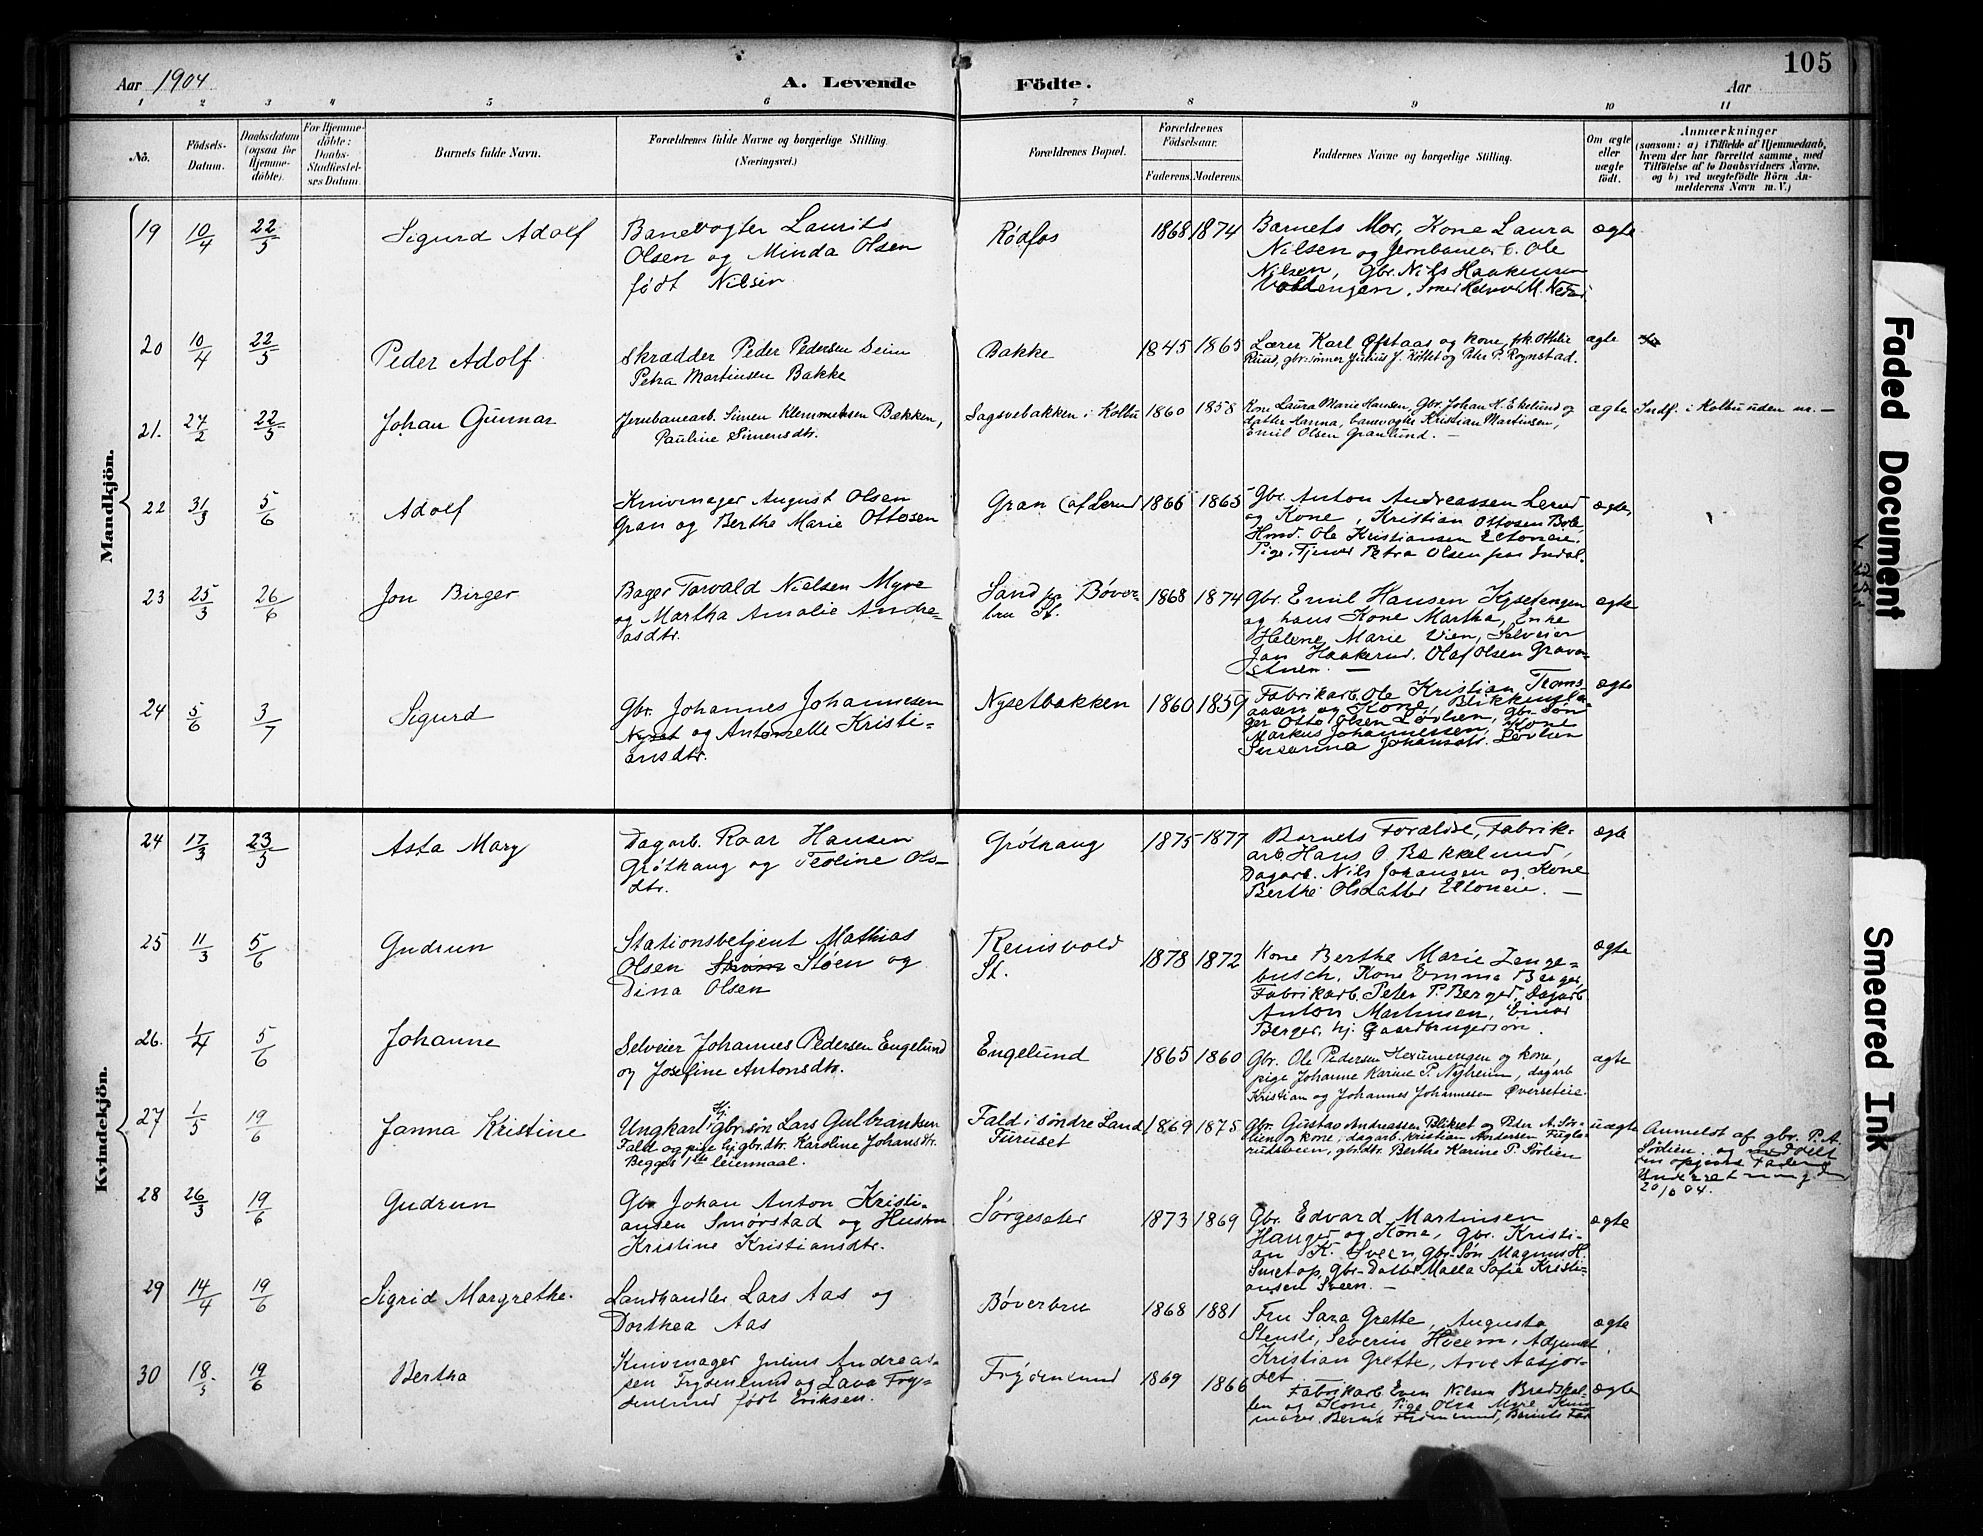 105
Aar 1904
A. Levende Födte.
Aar
1 2 3 4 5 6 7 8 9 10 11
No.
Födsels-
Datum.
Daabsdatum
(ogsaa for
Hjemme-
döbte).
For Hjemme-
döbte:
Daabs-
Stadfæstel-
ses Datum.
Barnets fulde Navn.
Forældrenes fulde Navne og borgerlige Stilling.
(Næringsvei.)
Forældrenes Bopæl.
Forældrenes
Födselsaar.
Faderens.
Moderens.
Faddernes Navne og borgerlige Stilling.
Om ægte
eller
uægte
födt.
Anmærkninger
(saasom: a) i Tilfælde af Hjemmedaab,
hvem der har forrettet samme, med
Tilföielse af to Daabsvidners Navne.
og b) ved uægtefödte Börn An-
melderens Navn m. V.)
Mandkjön.
19 10/4 22/5 Sigurd Adolf
Banevogter Laurits
Olsen og Minda Olsen
født Nilsen
Rødfos 1868 1874
Barnets Mor, Kone Laura
Nilsen og Jernbanearb. Ole
Nilsen, Gbr. Nils Haakensen
Voldengen,
ægte
20 10/4 22/5 Peder Adolf
Skrædder Peder Pedersen Seim
Petra Martinsen Bakke
Bakke 1845 1865
Lærer Karl Øfstaas og kone, frk. Othilie
Ruus, gbr. sønner Julius J. Kolset og Peter P. Rognstad.
ægte
21. 27/2 22/5 Johan Gunnar
Jernbanearb. Simen Klemmetsen Bækken,
Pauline Simensdtr.
Sagsvebakken i Kolbu 1860 1858
Kone Laura Marie Hansen, Gbr. Johan H. Ekelund og
datter Hanna, banevogter Kristian Martinsen,
Emil Olsen Granlund. —
ægte Indf. i Kolbu uden m. —
22 31/3 5/6 Adolf
Knivmager August Olsen
Gran og Berthe Marie Ottosen
Gran (af Lerud 1866 1865
Gbr. Anton Andreassen Lerud
og Kone, Kristian Ottosen Bøle
Hmd. Ole Kristiansen Eltoneie.
Pige, Tjener Petra Olsen paa Indal.
ægte
23 25/3 26/6 Jon Birger
Bager Torvald Nielsen Myre
og Martha Amalie Andre-
asdtr.
Sand pr Bøver-
bru St. 1868 1874
Gbr. Emil Hansen Kysetengen
og hans Kone Martha, Enke
Helene Marie Vien, Selveier
Jon Haakerud. Olaf Olsen Graven-
stuen. —
ægte
24 5/6 3/7 Sigurd
Gbr. Johannes Johannesen
Nyset og Antonette Kristi-
ansdtr.
Nysetbakken 1860 1859
Fabrikarb. Ole Kristian Troms-
aasen og Kone, Blikkensla-
ger Otto Olsen Løvlien, Gbr. Søn
Markus Johannessen, Kone
Susanna Johansdtr. Løvlien
ægte
Kvindekjön.
24 17/3 23/5 Asta Mary
Dagarb. Roar Hansen
Grøthaug og Teoline Ols-
dtr.
Grøthaug 1875 1877
Barnets Forældre, Fabrik-
arb. Hans O. Bækkelund,
Dagarb. Nils Johansen og Kone
Berthe Olsdatter Eltoneie. —
ægte
25 11/3 5/6 Gudrun
Stationsbetjent Mathias
Olsen Støen og
Dina Olsen
Reinsvold
St. 1878 1872
Kone Berthe Marie Lenge-
busch, Kone Emma Berger,
Fabrikarb. Peter P. Berger, Dagarb.
Anton Martinsen, Einar
Berger, hj. Gaardbrugersøn.
ægte
26. 1/4 5/6 Johanne
Selveier Johannes Pedersen Engelund
og Josefine Antonsdtr.
Engelund 1865 1860
Gbr. Ole Pedersen Hexumengen og kone,
pige Johanne Karine P. Nyheim, dagarb
Kristian og Johannes Johannesen Øverseteie
ægte
27 1/5 19/6 Janna Kristine
Ungkarl hj. gbr.søn Lars Gulbranken
Fald og pige hj. gbr.dtr. Karoline Johansdtr.
Begges 1ste leiermaal.
Fald i søndre Land
Furuset 1869 1875
Gbr. Gustav Andreassen Blikset og Peder A. Sør-
lien og kone, dagarb. Kristian Andersen Fugle-
rudsveien, gbr.dtr. Berthe Karine P. Sørlien
uægte
Anmeldt af gbr. P. A.
Sørlien. og meddelt
den opgivne Fader
Underretning
20/6 04.
28 26/3 19/6 Gudrun
Gbr Johan Anton Kristi-
ansen Smørstad og Hustru
Kristine Kristiansdtr.
Sørgeseter 1873 1869
Gbr. Edvard Martinsen
Hanger og Kone, Gbr. Kristi-
an K. Sveen, gbr-Søn Magnus H.
Smetop, gbr-Datter Maella Sofie Kristi-
ansen Sveen. —
ægte
29 14/4 19/6 Sigrid Margrethe.
Landhandler Lars Aas og
Dorthea Aas
Bøverbru 1868 1881
Fru Sara Grette, Augusta
Stensli, Severin Hveem, Adjunkt
Kristian Grette, Arve Aasjor-
det
ægte
30 18/3 19/6 Bertha
Knivmager Julius Andreas-
sen Frydenlund og Lava Fry-
denlund født Eriksen.
Frydenlund 1869 1866
Fabrikarb. Even Nilsen Bredskal-
len og Kone, Pige Olea Myre Kniv-
mager Bernt Frydenlund, Barnets Far
ægte
Faded Document
Smeared Ink